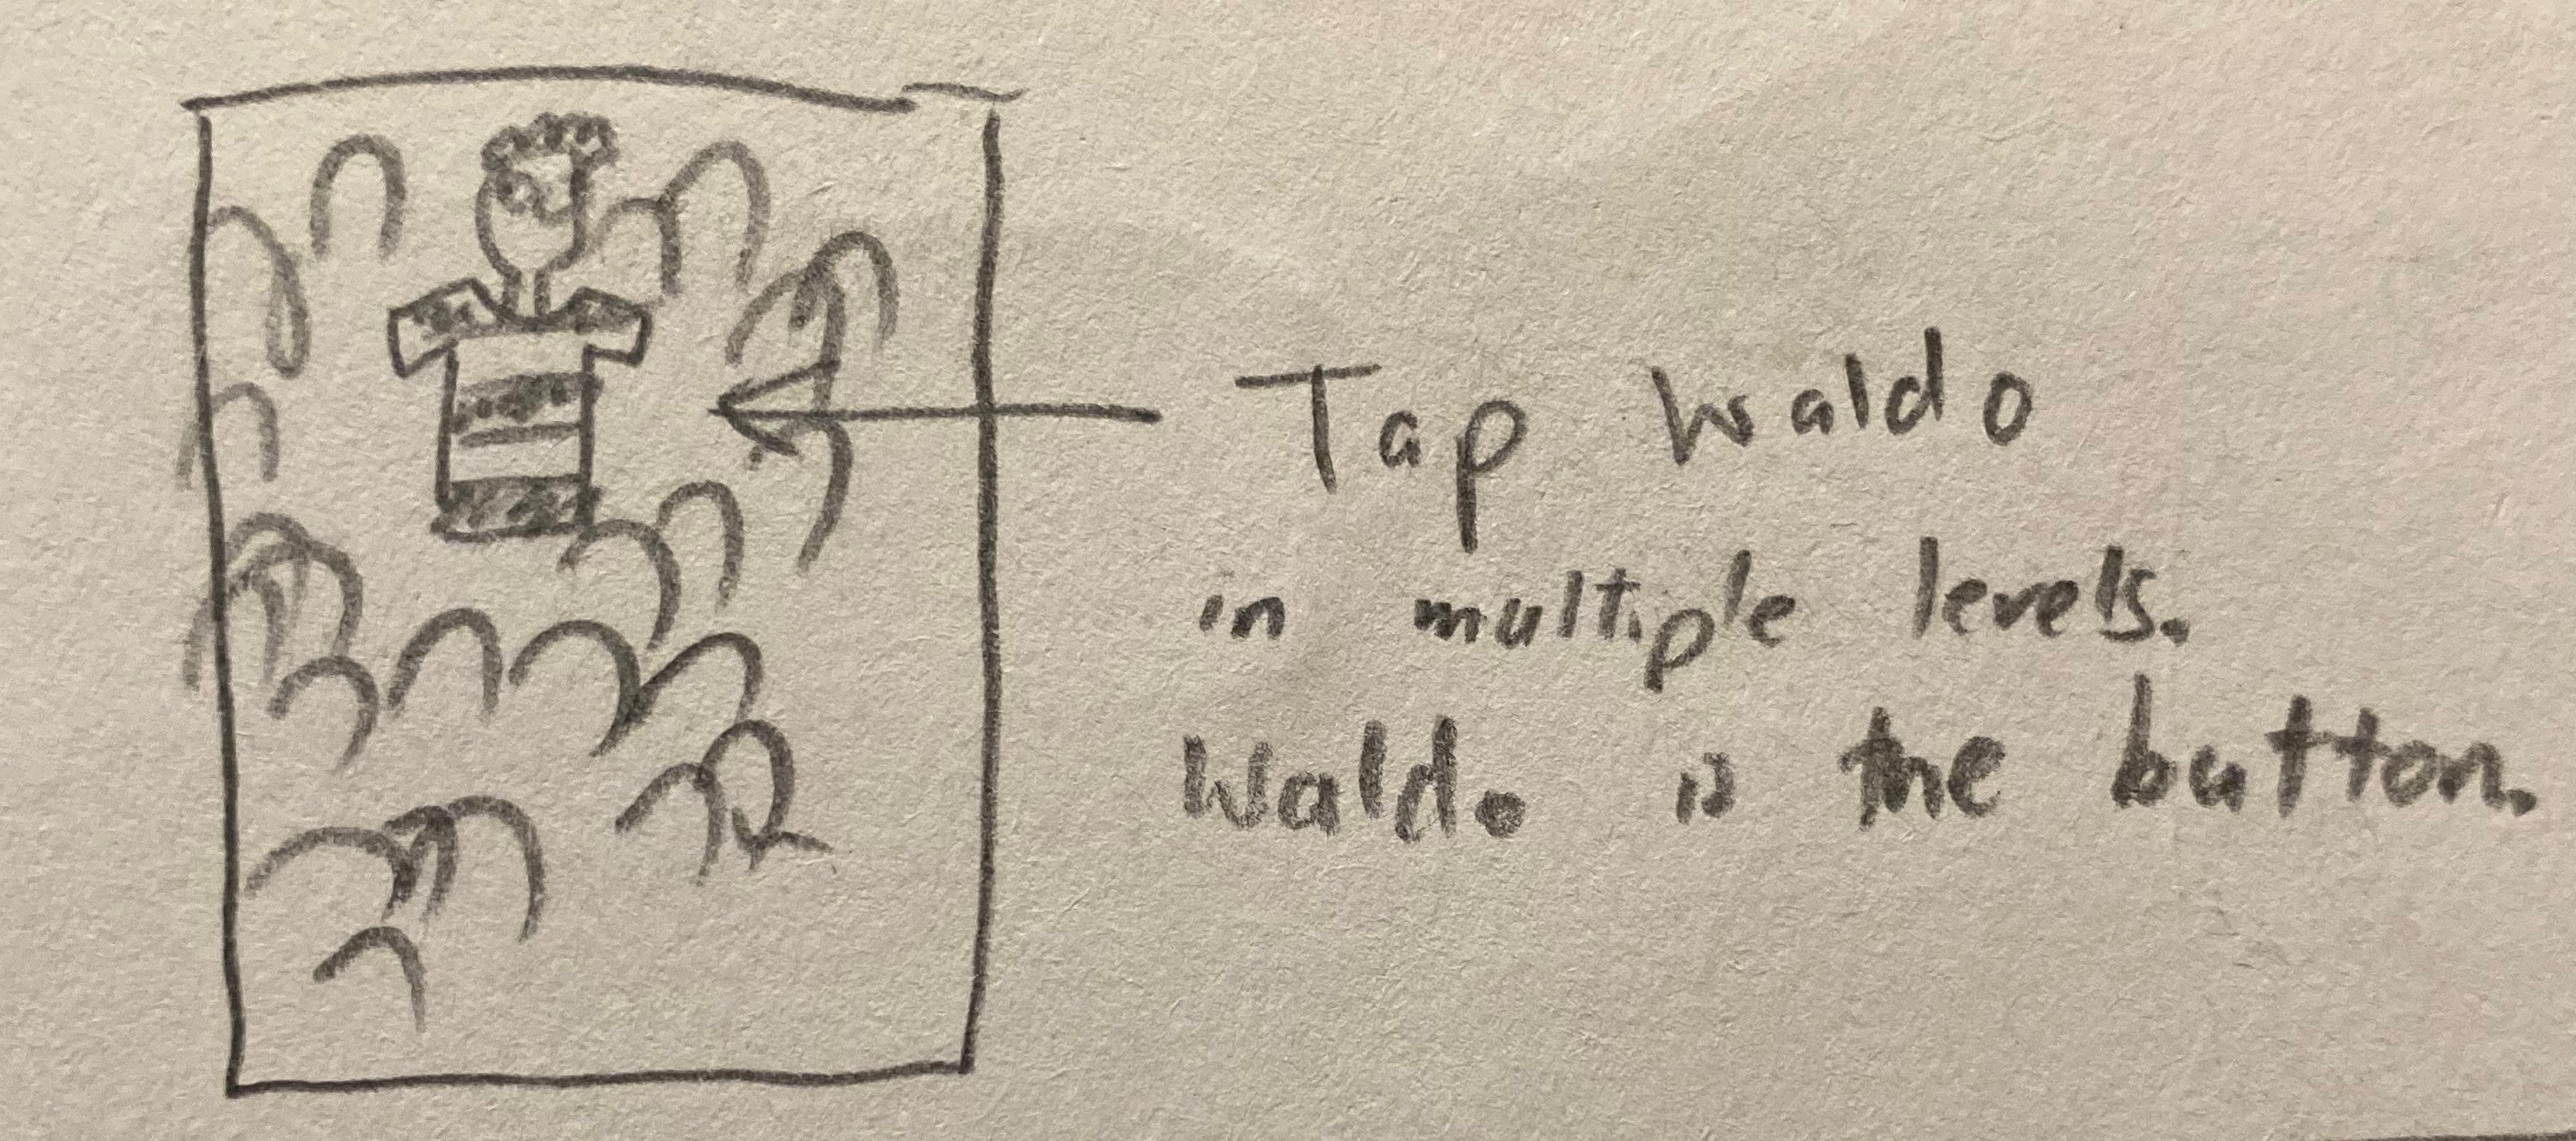 Tap Waldo
in multiple levels.
Waldo is the button.